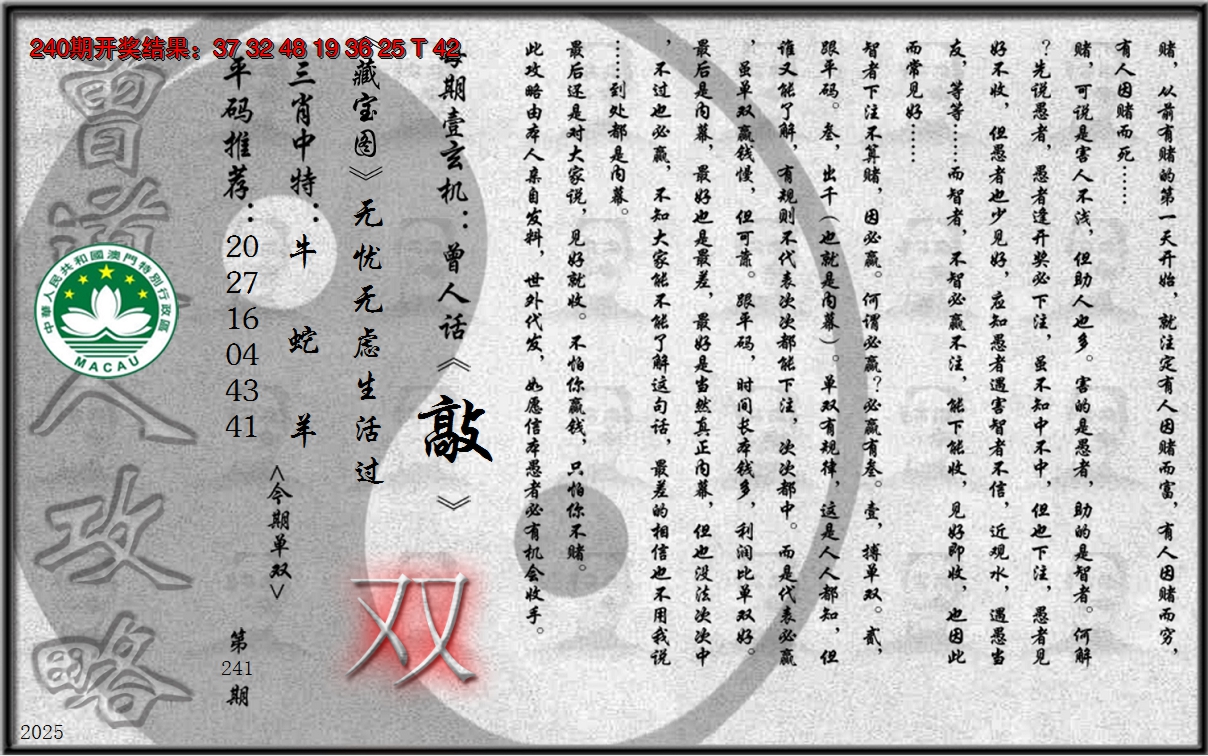 240期开奖结果：37 32 48 19 36 25 T 42
赌，从前有赌的第一天开始，就注定有人因赌而富，有人因赌而穷，
有人因赌而死……
赌，可说是害人不浅，但助人也多。害的是愚者，助的是智者。何解
？先说愚者，愚者逢开奖必下注，虽不知中不中，但也下注，愚者见
好不收，但愚者也少见好，应知愚者遇害智者不信，近观水，遇愚当
友，等等……而智者，不智必赢不注，能下能收，见好即收，也因此
而常见好……
智者下注不算赌，因必赢。何谓必赢？必赢有叁。壹，搏单双。贰，
跟平码。叁，出千（也就是内幕）。单双有规律，这是人人都知，但
谁又能了解，有规则不代表次次都能下注，次次都中。而是代表必赢
，虽单双赢钱慢，但可靠。跟平码，时间长本钱多，利润比单双好。
最后是内幕，最好也是最差，最好是当然真正内幕，但也没法次次中
，不过也必赢，不知大家能不能了解这句话，最差的相信也不用我说
……到处都是内幕。
最后还是对大家说，见好就收。不怕你赢钱，只怕你不赌。
此攻略由本人亲自发料，世外代发，如愿信本愚者必有机会收手。
每期壹玄机：曾人话《敲》
《藏宝图》无忧无虑生活过
双
三肖中特：牛 蛇 羊
<今期单双>
平码推荐：20 27 16 04 43 41
第241期
曾道人攻略
中華人民共和國澳門特別行政區
MACAU
2025